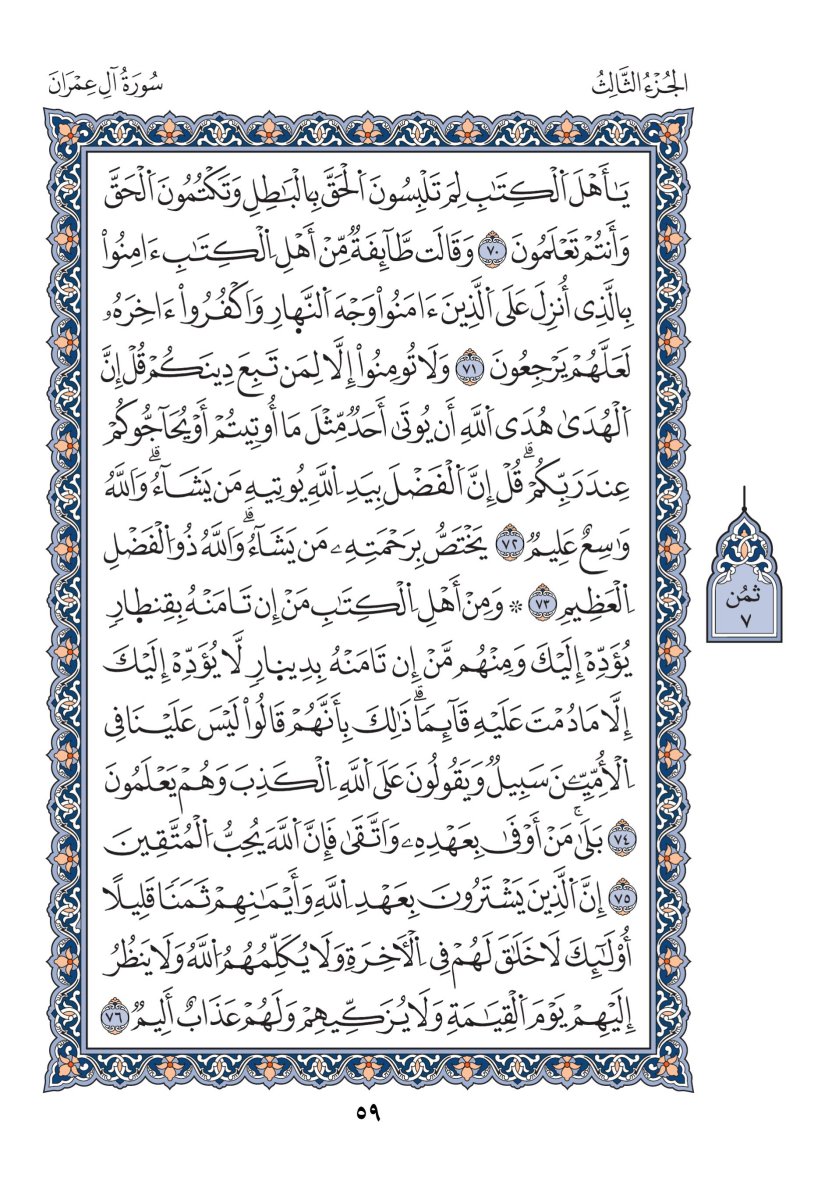 الجُزْءُ الثَّالِثُ
سُورَةُ آلِ عِمْرَانَ
يَٰأَهْلَ اَ۬لْكِتَٰبِ لِمَ تَلْبِسُونَ اَ۬لْحَقَّ بِالْبَٰطِلِ وَتَكْتُمُونَ اَ۬لْحَقَّ
وَأَنتُمْ تَعْلَمُونَ ٧٠ وَقَالَت طَّآئِفَةٌ مِّنْ أَهْلِ اِ۬لْكِتَٰبِ ءَامِنُواْ
بِالَّذِى أُنزِلَ عَلَى اَ۬لَّذِينَ ءَامَنُواْ وَجْهَ اَ۬لنَّهِارِ وَاَكْفُرُواْ ءَاخِرَهُۥ
لَعَلَّهُمْ يَرْجِعُونَ ٧١ وَلَا تُومِنُواْ إِلَّا لِمَن تَبِعَ دِينَكُمْ قُلْ إِنَّ
اَ۬لْهُدَىٰ هُدَى اَ۬للَّهِ أَن يُوتَىٰ أَحَدٌ مِّثْلَ مَا أُوتِيتُمْ أَوْ يُحَآجُّوكُمْ
عِندَ رَبِّكُمْۗ قُلْ إِنَّ اَ۬لْفَضْلَ بِيَدِ اِ۬للَّهِ يُوتِيهِ مَن يَشَآءُۗ وَاللَّهُ
وَٰسِعٌ عَلِيمٌ ٧٢ يَخْتَصُّ بِرَحْمَتِهِۦ مَن يَشَآءُۗ وَاللَّهُ ذُو اُ۬لْفَضْلِ
اِ۬لْعَظِيمِ ٧٣ * وَمِنْ أَهْلِ اِ۬لْكِتَٰبِ مَنْ إِن تَامَنْهُ بِقِنطِارٍ
يُؤَدِّهْ إِلَيْكَ وَمِنْهُم مَّنْ إِن تَامَنْهُ بِدِينِارٍ لَّا يُؤَدِّهْ إِلَيْكَ
إِلَّا مَا دُمْتَ عَلَيْهِ قَآئِمًاۗ ذَٰلِكَ بِأَنَّهُمْ قَالُواْ لَيْسَ عَلَيْنَا فِى
اِ۬لْأُمِّيِّـۧنَ سَبِيلٌ وَيَقُولُونَ عَلَى اَ۬للَّهِ اِ۬لْكَذِبَ وَهُمْ يَعْلَمُونَ
٧٤ بَلَىٰۚ مَنْ أَوْفَىٰ بِعَهْدِهِۦ وَاَتَّقَىٰ فَإِنَّ اَ۬للَّهَ يُحِبُّ اُ۬لْمُتَّقِينَ
٧٥ إِنَّ اَ۬لَّذِينَ يَشْتَرُونَ بِعَهْدِ اِ۬للَّهِ وَأَيْمَٰنِهِمْ ثَمَنًا قَلِيلًا
أُوْلَٰٓئِكَ لَا خَلَٰقَ لَهُمْ فِى اِ۬لْأٓخِرَةِ وَلَا يُكَلِّمُهُمُ اُ۬للَّهُ وَلَا يَنظُرُ
إِلَيْهِمْ يَوْمَ اَ۬لْقِيَٰمَةِ وَلَا يُزَكِّيهِمْ وَلَهُمْ عَذَابٌ أَلِيمٌ ٧٦
ثُمُن
٧
٥٩